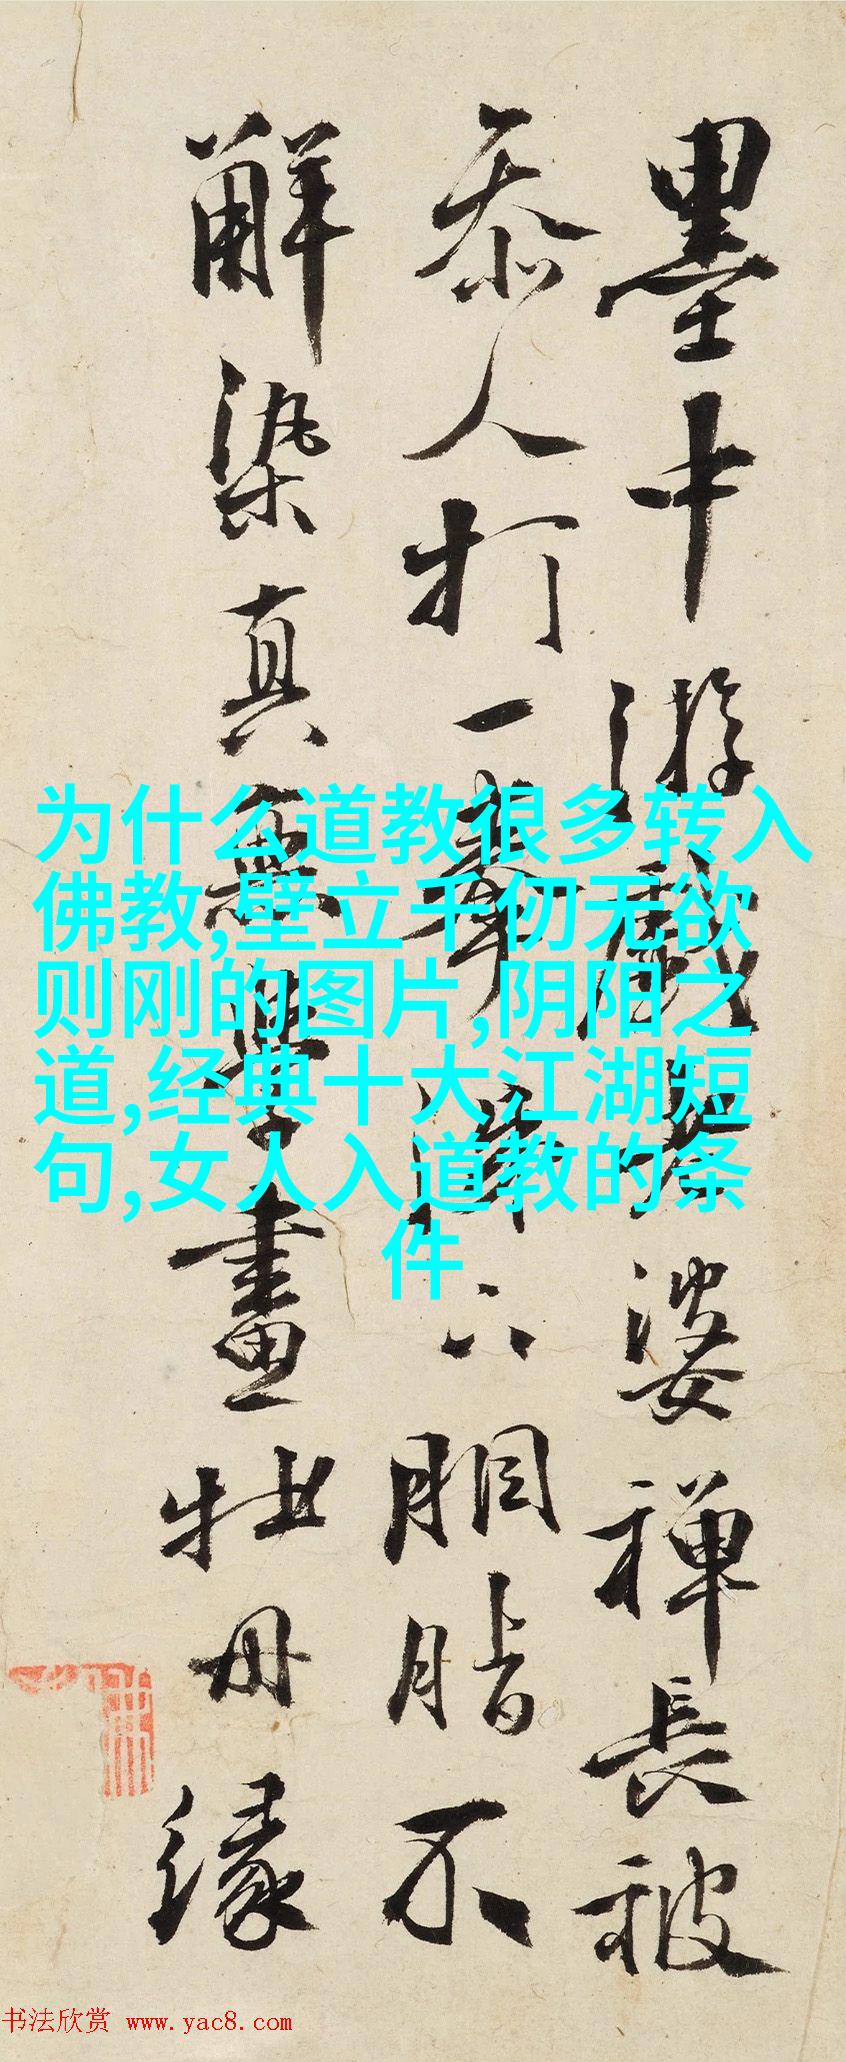 墨中游戲老婆禪長被
参人打一拳涕下胭脂不
解染真無學畫牡丹緣
为什么道教很多转入
佛教,壁立千仞无欲
则刚的图片,阴阳之
道,经典十大江湖短
句,女人入道教的条
件
书法欣赏 www.yac8.com